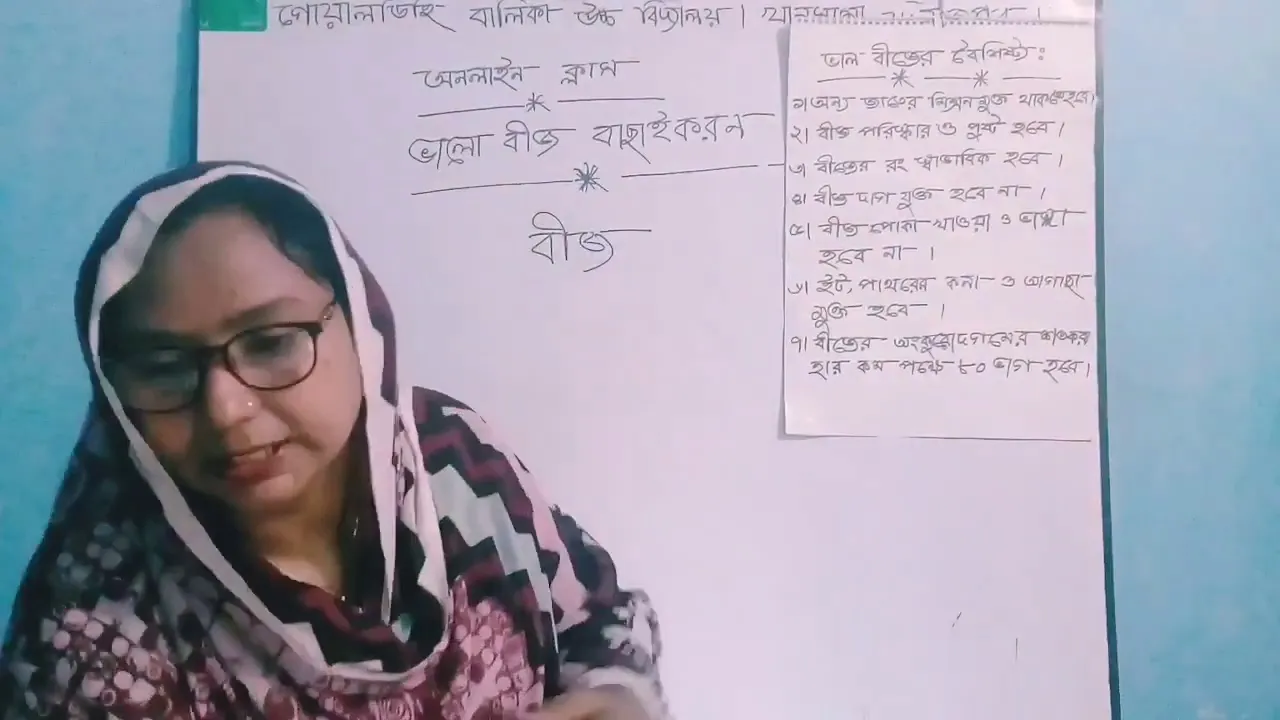 গোয়ালডিহি বালিকা উচ্চ বিদ্যালয়। খানসামা
অনলাইন ক্লাস
ভালো বীজ বাছাইকরন
বীজ
ভাল বীজের বৈশিষ্ট্য:
১) অন্য জাতের মিশ্রন মুক্ত থাকতে হবে।
২। বীজ পরিষ্কার ও পুষ্ট হবে।
৩) বীজের রং স্বাভাবিক হবে।
৪। বীজ দাগ যুক্ত হবে না।
৫। বীজ পোকা খাওয়া ও ভাঙ্গা
হবে না।
৬। ইট, পাথরের কনা ও আগাছা
মুক্ত হবে।
৭। বীজের অংকুরোদগমের শতকরা
হার কম পক্ষে ৮০ ভাগ হবে।